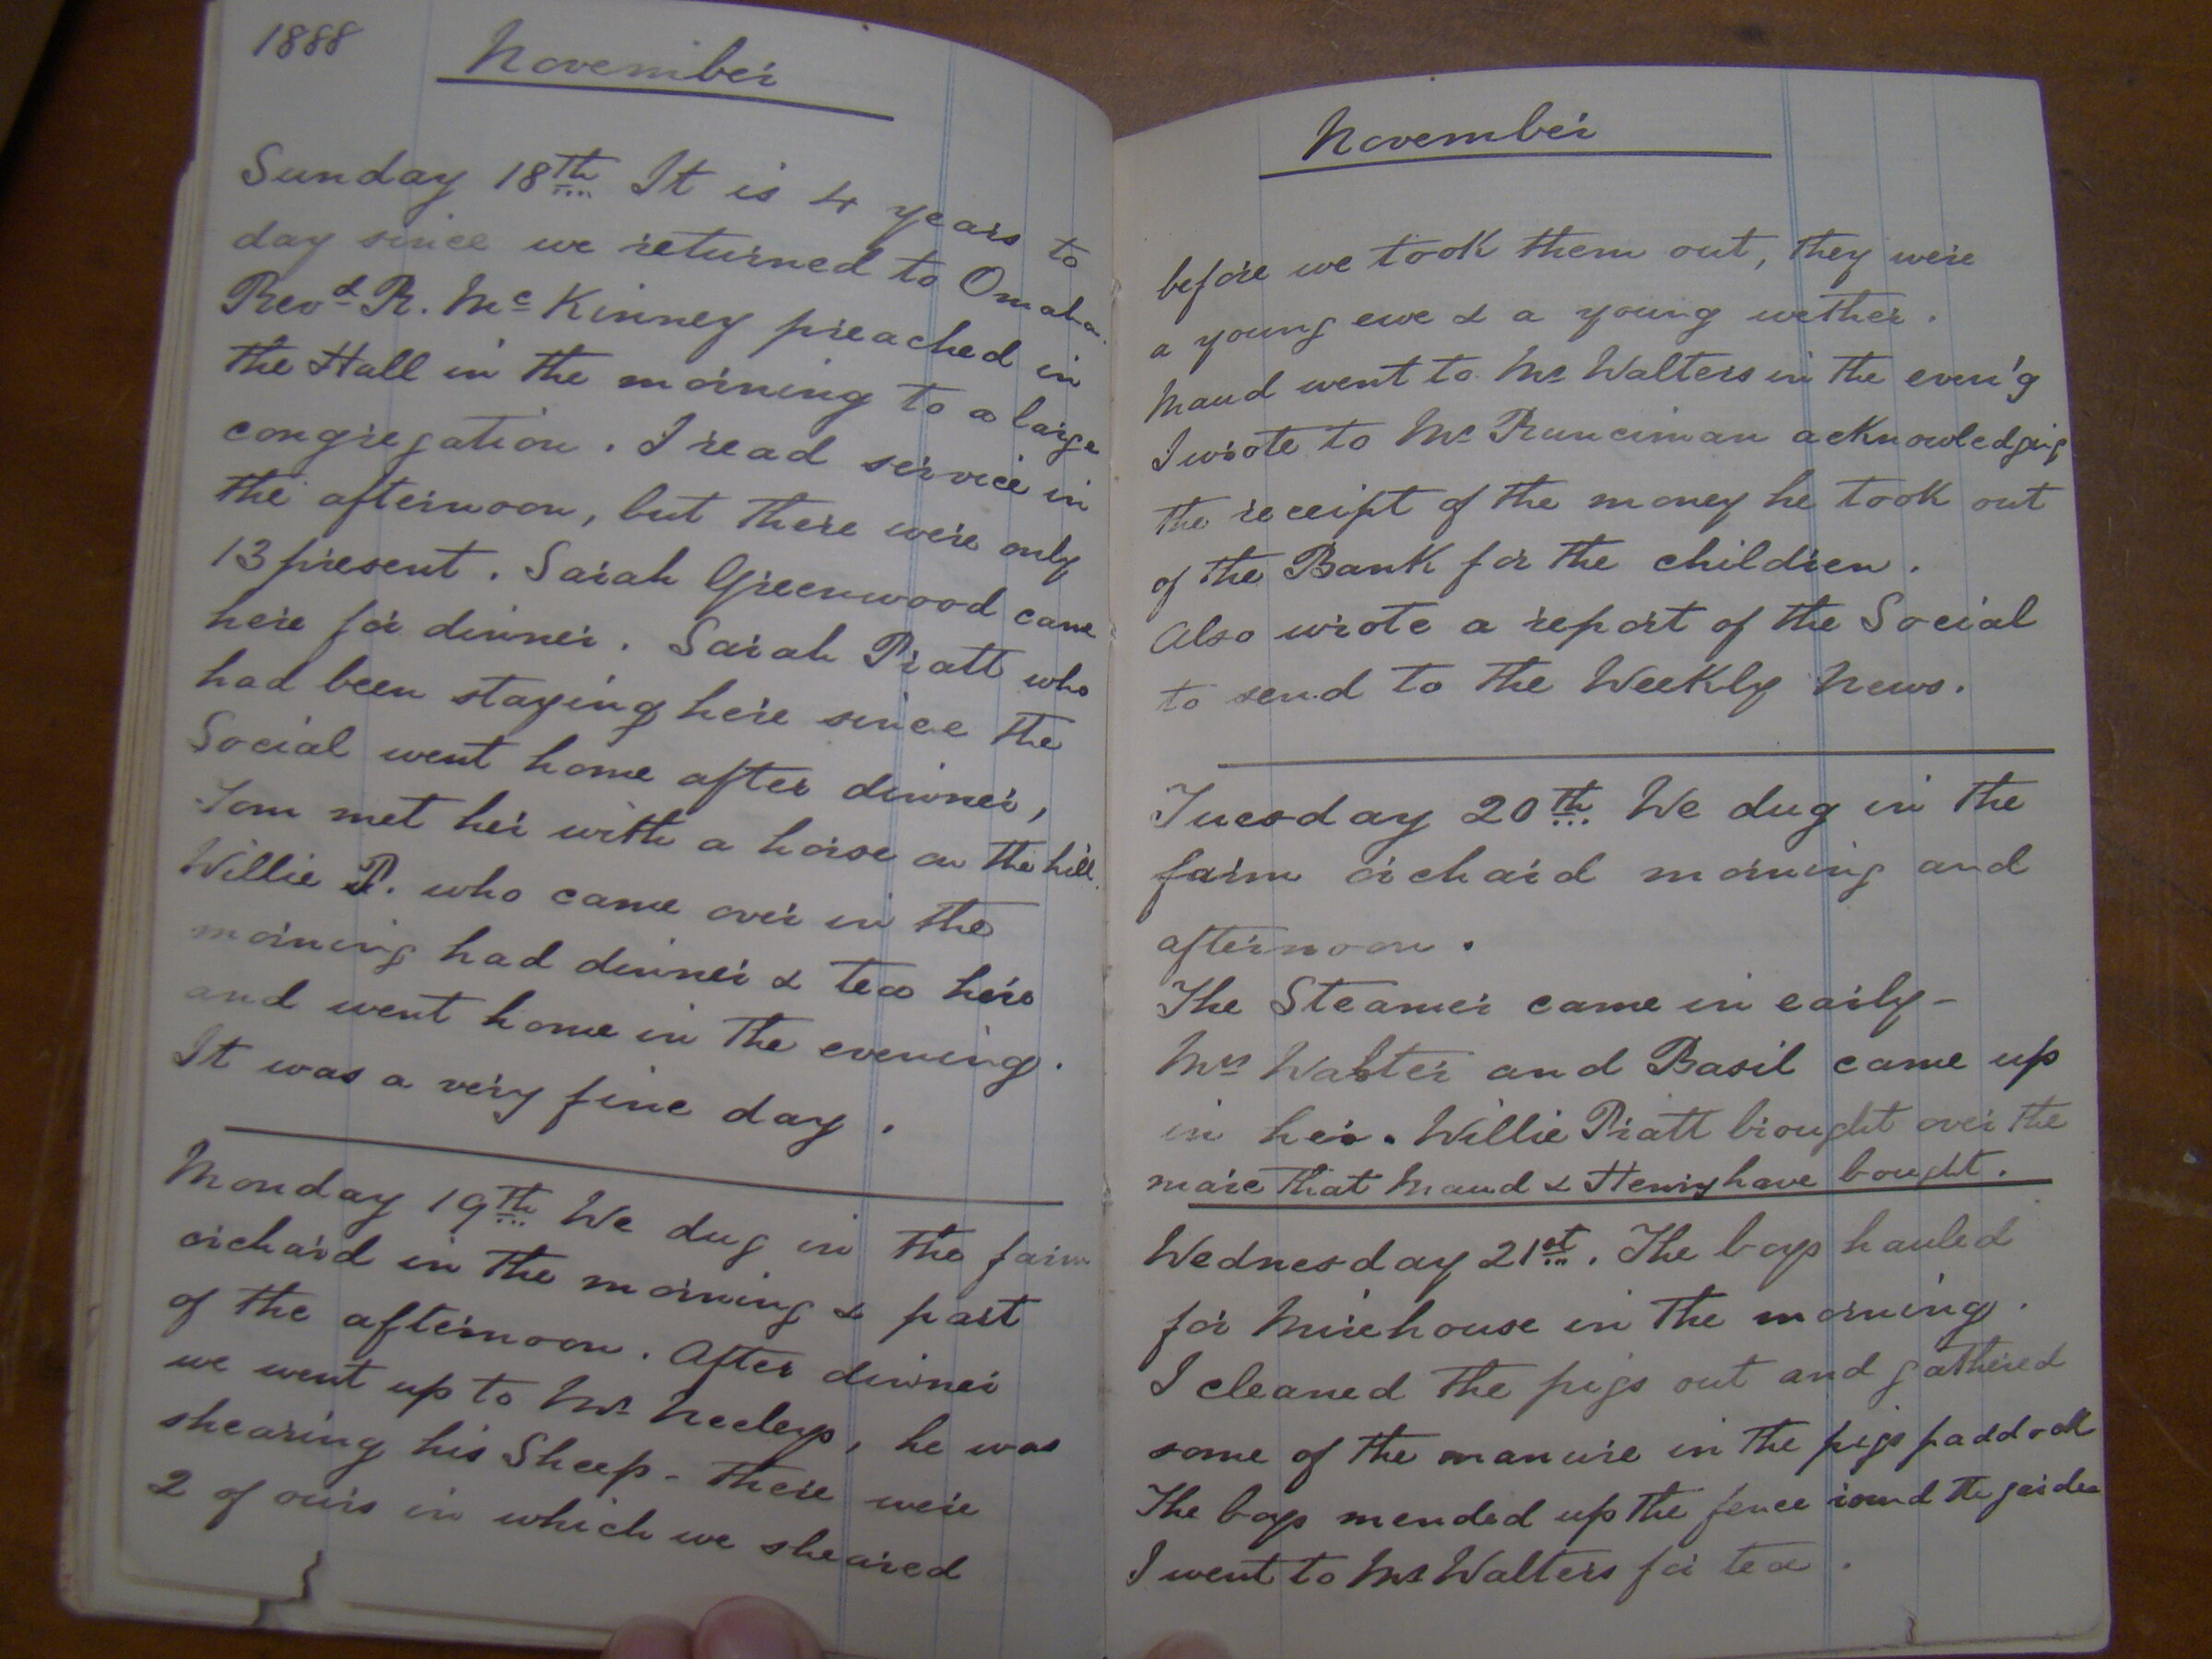 1888
November
Sunday 18th It is 4 years to
day since we returned to Omaha.
Revd R. Mc Kinney preached in
the Hall in the morning to a large
congregation. I read service in
the afternoon, but there were only
13 present. Sarah Greenwood came
here for dinner. Sarah Pratt who
had been staying here since the
Social went home after dinner,
Tom met her with a horse on the hill.
Willie P. who came over in the
morning had dinner & tea here
and went home in the evening.
It was a very fine day.
Monday 19th We dug in the farm
orchard in the morning & part
of the afternoon. After dinner
we went up to Mr Neeleys, he was
shearing his Sheep - there were
2 of ours in which we sheared
November
before we took them out, they were
a young ewe & a young wether.
Maud went to Mr Walters in the even'g
I wrote to Mr Runciman acknowledging
the receipt of the money he took out
of the Bank for the children.
Also wrote a report of the Social
to send to the Weekly News.
Tuesday 20th We dug in the
farm orchard morning and
afternoon.
The Steamer came in early-
Mrs Walter and Basil came up
in her. Willie Pratt brought over the
mare that Maud & Henry have bought.
Wednesday 21st. The boys hauled
for Mirehouse in the morning.
I cleaned the pigs out and gathered
some of the manure in the pigs paddock
The boys mended up the fence round the garden
I went to Mr Walters for tea.